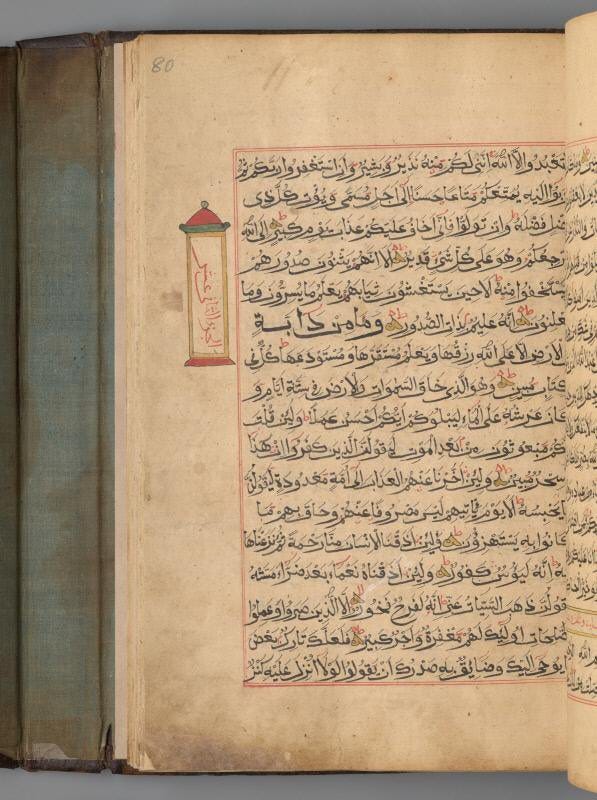 80
تعبدوا الا الله اننى لكم منه نذير وبشير وان استغفروا ربكم ثم
توبوا اليه يمتعكم متاعا حسنا الى اجل مسمى ويؤت كل ذى
فضل فضله وان تولوا فانى اخاف عليكم عذاب يوم كبير الى الله
مرجعكم وهو على كل شىء قدير الا انهم يثنون صدورهم
ليستخفوا منه الا حين يستغشون ثيابهم يعلم ما يسرون وما
يعلنون انه عليم بذات الصدور وما من دابة
فى الارض الا على الله رزقها ويعلم مستقرها ومستودعها كل فى
كتاب مبين وهو الذى خلق السموات والارض فى ستة ايام و
كان عرشه على الماء ليبلوكم ايكم احسن عملا ولئن قلت
انكم مبعوثون من بعد الموت ليقولن الذين كفروا ان هذا
الا سحر مبين ولئن اخرنا عنهم العذاب الى امة معدودة ليقولن
ما يحبسه الا يوم ياتيهم ليس مصروفا عنهم وحاق بهم ما
كانوا به يستهزؤن ولئن اذقنا الانسان منا رحمة ثم نزعناها
منه انه ليؤس كفور ولئن اذقناه نعماء بعد ضراء مسته
ليقولن ذهب السيئات عنى انه لفرح فخور الا الذين صبروا وعملوا
الصالحات اولئك لهم مغفرة واجر كبير فلعلك تارك بعض
ما يوحى اليك وضائق به صدرك ان يقولوا لولا انزل عليه كنز
الجزء الثانى عشر